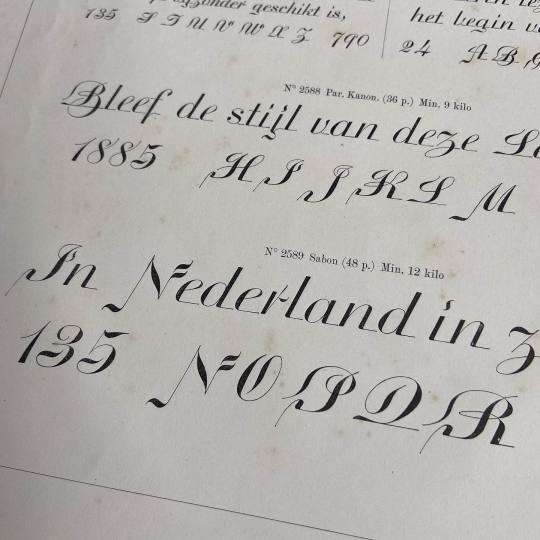 geschikt is,
135 S T U V W X Z 790
het begin
24 A B
N° 2588 Par. Kanon. (36 p.) Min. 9 kilo
Bleef de stijl van deze
1885 H I J K L M
N° 2589 Sabon (48 p.) Min. 12 kilo
In Nederland in
135 N O P Q R